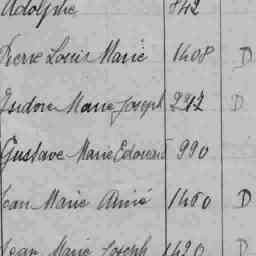 Adolphe 842
Pierre Louis Marie 1408 D
Isidore Marie Joseph 2212 D
Gustave Marie Edouard 990
Jean Marie Aimé 1450 D
Jean Marie Joseph 1420 D